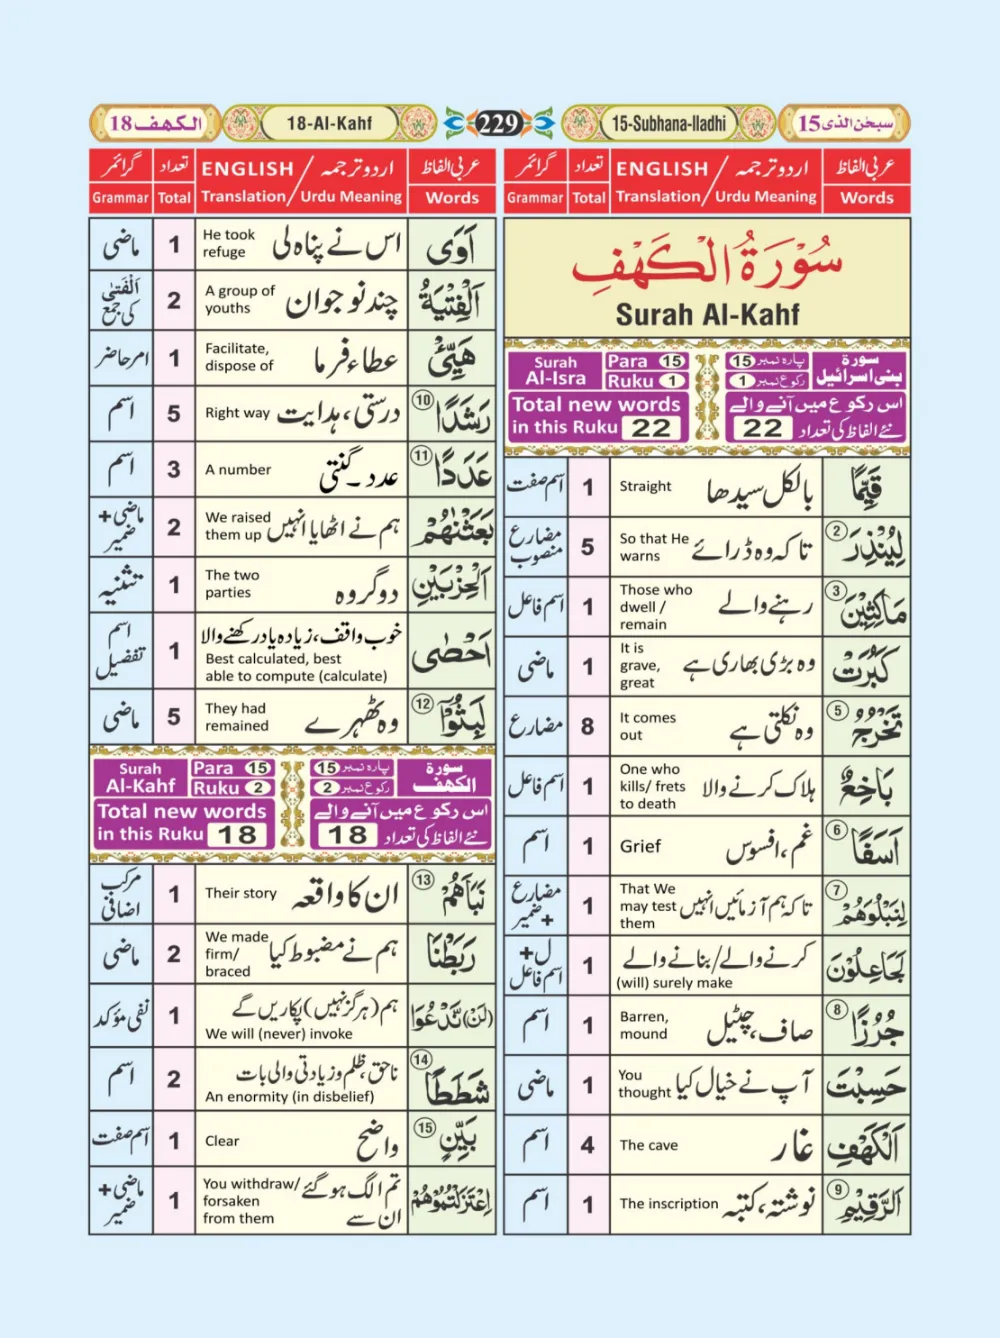 الكهف 18
18-Al-Kahf
229
15-Subhana-lladhi
سبحٰن الذی 15
عربی الفاظ اردو ترجمہ / ENGLISH تعداد گرائمر
Words Translation / Urdu Meaning Total Grammar
سُوْرَةُ الْكَهْفِ
Surah Al-Kahf
Surah Al-Isra Para 15 پارہ نمبر 15 سورة بنی اسرائیل
Ruku 1 رکوع نمبر 1
Total new words in this Ruku 22
اس رکوع میں آنے والے نئے الفاظ کی تعداد 22
قَيِّمًا بالکل سیدھا Straight 1 اسم صفت
② لِيُنْذِرَ تا کہ وہ ڈرائے So that He warns 5 مضارع منصوب
③ مَاكِثِيْنَ رہنے والے Those who dwell / remain 1 اسم فاعل
كَبُرَتْ وہ بڑی بھاری ہے It is grave, great 1 ماضی
⑤ تَخْرُجُ وہ نکلتی ہے It comes out 8 مضارع
بَاخِعٌ ہلاک کرنے والا One who kills/ frets to death 1 اسم فاعل
⑥ اَسَفًا غم، افسوس Grief 1 اسم
⑦ لِنَبْلُوَهُمْ تا کہ ہم آزمائیں انہیں That We may test them 1 مضارع + ضمیر
لَجَاعِلُوْنَ کرنے والے/ بنانے والے (will) surely make 1 ل + اسم فاعل
⑧ جُرُزًا صاف، چٹیل Barren, mound 1 اسم
حَسِبْتَ آپ نے خیال کیا You thought 1 ماضی
اَلْكَهْفِ غار The cave 4 اسم
⑨ اَلرَّقِيْمِ نوشتہ، کتبہ The inscription 1 اسم
عربی الفاظ اردو ترجمہ / ENGLISH تعداد گرائمر
Words Translation / Urdu Meaning Total Grammar
اَوَى اس نے پناہ لی He took refuge 1 ماضی
اَلْفِتْيَةُ چند نوجوان A group of youths 2 اَلْفَتٰى کی جمع
هَيِّئْ عطاء فرما Facilitate, dispose of 1 امر حاضر
⑩ رَشَدًا درستی، ہدایت Right way 5 اسم
⑪ عَدَدًا عدد۔ گنتی A number 3 اسم
بَعَثْنٰهُمْ ہم نے اٹھایا انہیں We raised them up 2 ماضی + ضمیر
اَلْحِزْبَيْنِ دو گروہ The two parties 1 تثنیہ
اَحْصٰى خوب واقف، زیادہ یاد رکھنے والا Best calculated, best able to compute (calculate) 1 اسم تفضیل
⑫ لَبِثُوْٓا وہ ٹھہرے They had remained 5 ماضی
Surah Al-Kahf Para 15 پارہ نمبر 15 سورة الكهف
Ruku 2 رکوع نمبر 2
Total new words in this Ruku 18
اس رکوع میں آنے والے نئے الفاظ کی تعداد 18
⑬ نَبَاَهُمْ ان کا واقعہ Their story 1 مرکب اضافی
رَبَطْنَا ہم نے مضبوط کیا We made firm/ braced 2 ماضی
(لَنْ) نَّدْعُوَا ہم (ہرگز نہیں) پکاریں گے We will (never) invoke 1 نفی مؤکد
⑭ شَطَطًا ناحق، ظلم و زیادتی والی بات An enormity (in disbelief) 2 اسم
⑮ بَيِّنٍ واضح Clear 1 اسم صفت
اِعْتَزَلْتُمُوْهُمْ تم الگ ہو گئے ان سے You withdraw/ forsaken from them 1 ماضی + ضمیر